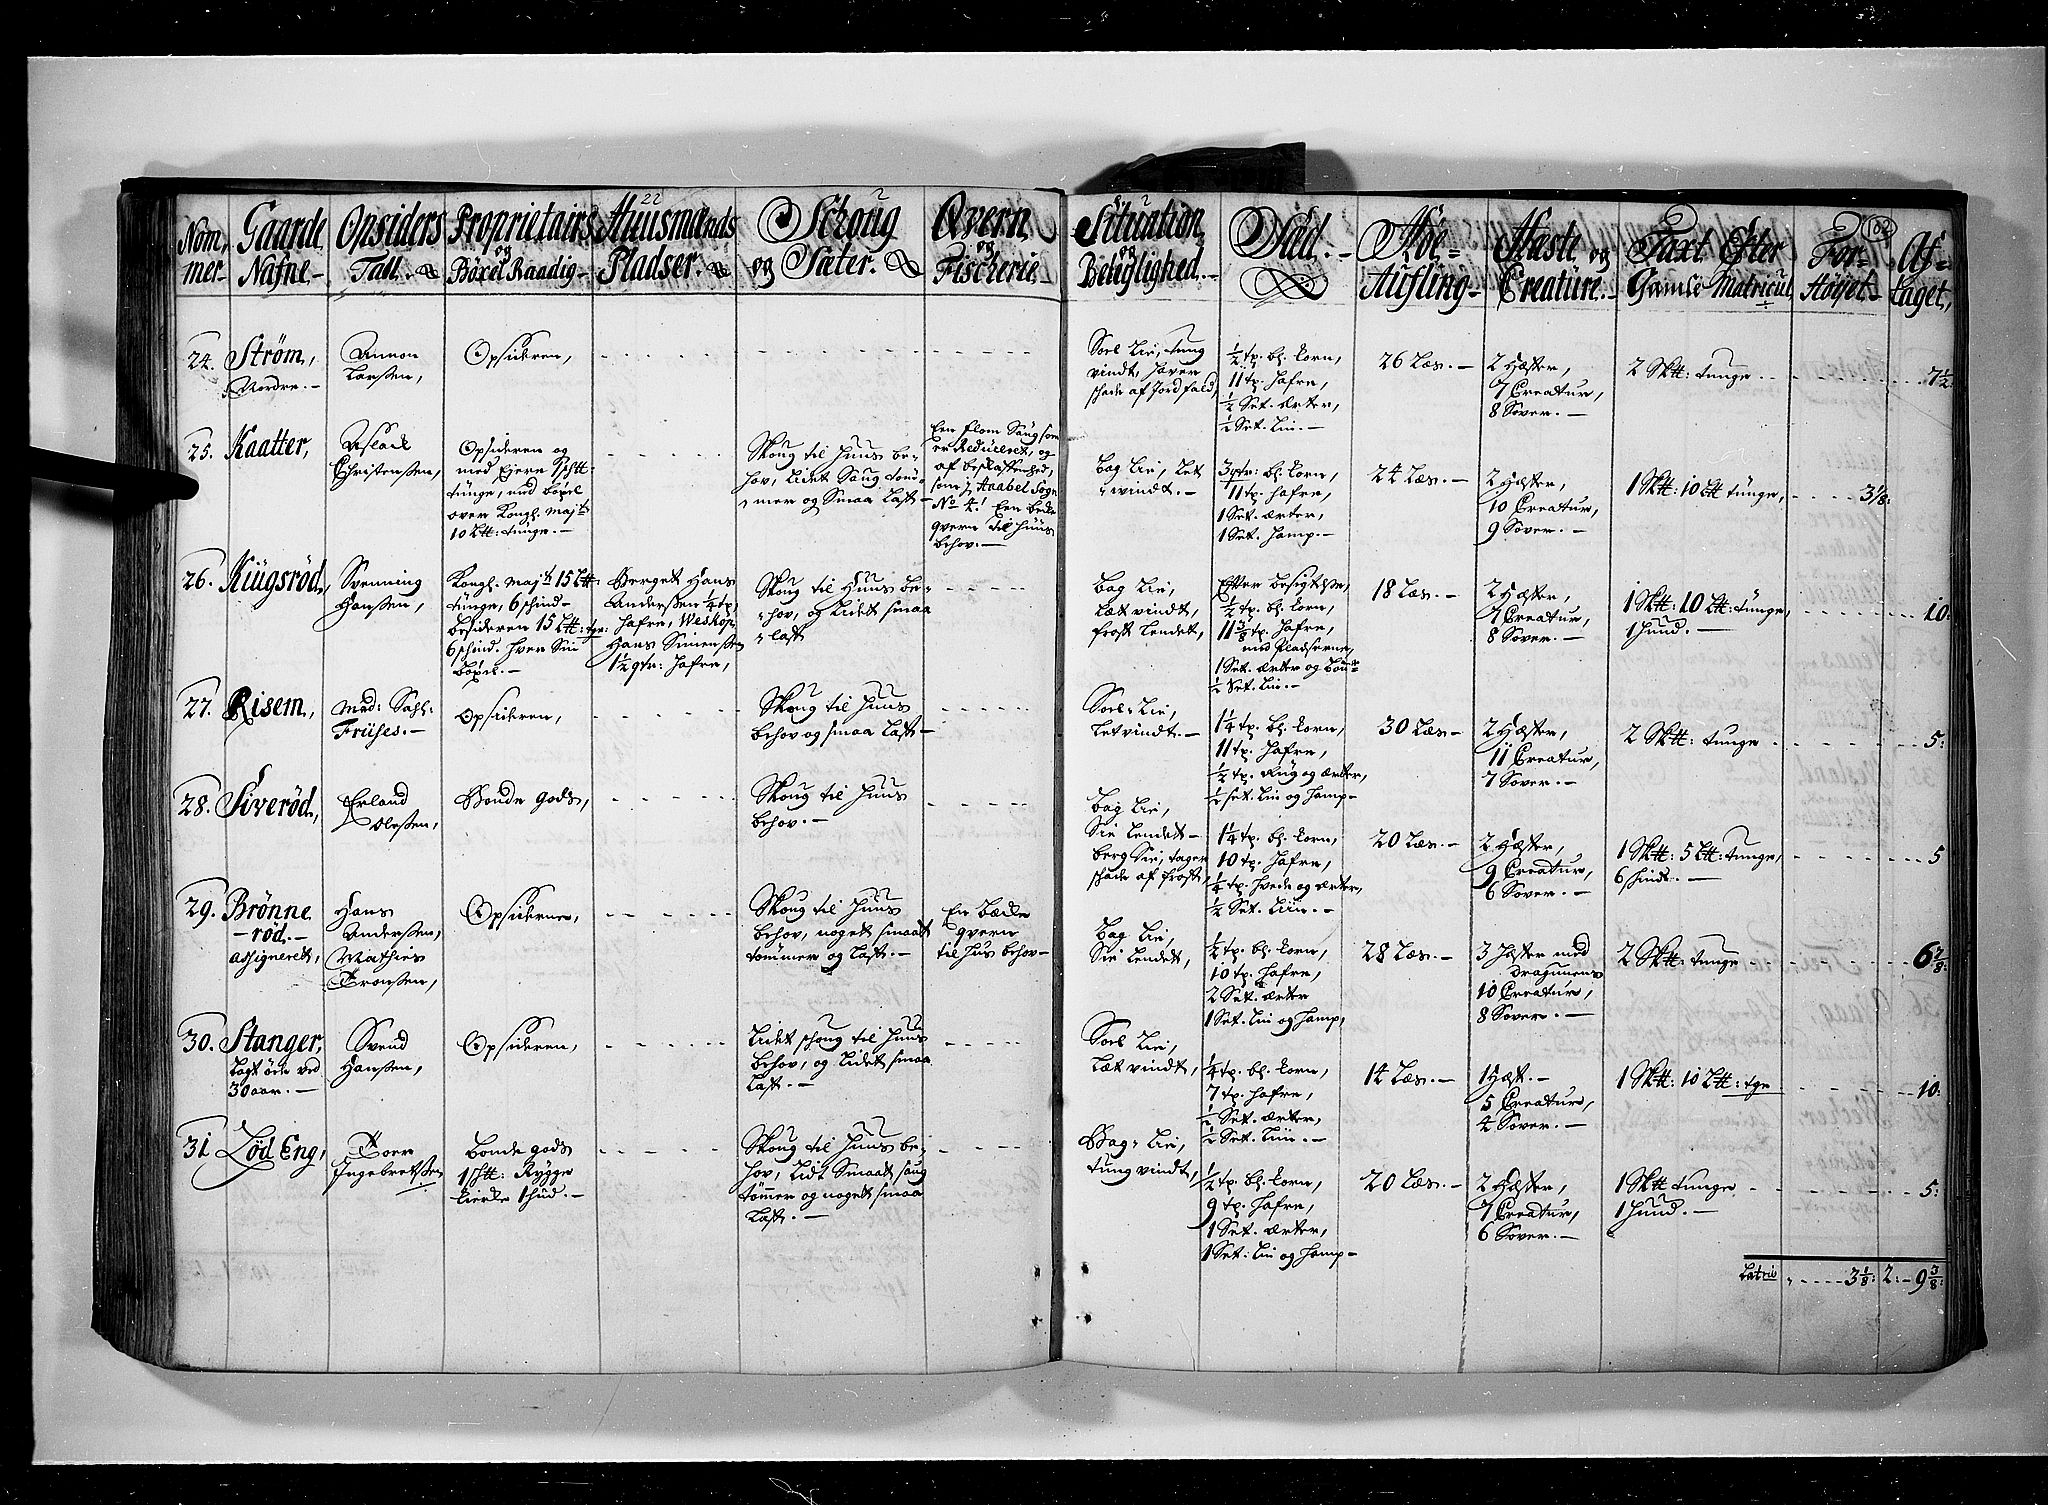 22
102
Nom,
mer-
Gaarde
Nafne-
Opsiders
Tall.
Proprietairs
og
Böxel Raadig-
Huusmænds
Pladser.
Skoug
og Sæter.
Qvern
og
Fischerie-
Situation
og
Beleylighed.-
Sæd.-
Höe-
Aufling-
Hæste og
Creature.-
Taxt Efter
Gamle Matricul
For-
Höyet-
Af-
taget,
24. Ström,
Nordre.-
Larssen,
Opsideren,
Soel Lie, tung
vindt, haver
schade af Jordfald,
½ tp. bl. korn,
11 tp. hafre,
½ Set. ærter,
½ Set. Lin.-
26 Læs.-
2 Hæster,
7 Creatur,
8 Sover.-
2 Sk℔: tunge
7½
25. Kaatter,
Aslack
Christenssen,
Opsideren og
med Ejere
tunge, med böxel
over Kongl. maj:ts
10 L℔: tunge.-
Skoug til huus be-
hov, Lidet Saug töm-
mer og Smaa Last-
En flom Saug som
er Reduceret, og
af beskaffenhed,
som j Aabel Sogn
No 4. En beche
qvern til huus
behov.-
Bag Lie, Let
vindt.-
3 qtr: bl. korn,
11 tp. hafre,
1 Set. ærter,
1 Set. hamp.-
24 Læs.-
2 Hæster,
10 Creatur,
9 Sover.-
1 Sk℔: 10 L℔ tunge,
3⅛:
26. Kiügsröd,
Svenning
Hanssen,
Kongl. maj:ts 15 L℔:
tunge, 6 schind-
besideren 15 L℔: tge:
6 schind. hver Sin
böxel.-
Berget Hans
Anderssen ¼ tp,
hafre, Weskop
Hans Simenssen
1½ qtr: hafre,
Skoug til Huus be-
hov, og Lidet smaa
last
Bag Lie,
Læt vindt,
frost Lendet,
Efter besigtelse,
½ tp. bl. korn,
11⅜ tp. hafre,
med Pladserne,
1 Set. ærter og bön-
½ Set. Lin.-
18 Læs.-
2 Hæster,
7 Creatur,
8 Sover.-
1 Sk℔: 10 L℔: tunge,
1 hund.-
10:
27. Risem,
Mad: Sahl:
Friises.-
Opsideren,
Skoug til huus
behov og smaa Last-
Soel Lie,
Let vindt.-
1¼ tp. bl. korn,
11 tp. hafre,
½ tp. Rug og ærter,
½ set. Lin og hamp-
30 Læs-
2 Hæster,
11 Creatur,
7 Sover.-
2 Sk℔: tunge
5:
28. Siveröd,
Erland
Olessen,
Bonde gods,
Skoug til huus
behov.-
Bag Lie,
Sie Lendet-
berg Sie, tager
schade af frost,
1¼ tp. bl. korn,
10 tp. hafre,
¼ tp. hvede og ærter,
½ Set. Liin.-
20 Læs.-
2 Hæster,
9 Creatur,
6 Sover.-
1 Sk℔: 5 L℔: tunge,
6 skind.-
5
29. Brönne
-röd.-
assigneret,
Hans
Anderssen,
Mathies
Tronssen,
Opsiderne,
Skoug til huus
behov, noget smaat
tömmer og Last.-
En Becke
qvern
til hus behov-
Bag Lie,
Sie Lendet,
½ tp. bl. korn,
10 tp. hafre,
2 Set. ærter
1 Set. Lin og hamp,
28 Læs.-
3 hæster med
dragunens
10 Creatur,
8 Sover.-
2 Sk℔: tunge
6⅞:
30. Stanger,
Lagt öde ved
30 aar.-
Svend
Hanssen,
Opsideren,
Lidet skoug til huus
behov, og Lidet smaa
Last.-
Soel Lie,
Læt vindt,
¼ tp. bl. korn,
7 tp. hafre,
½ Set. ærter,
½ Set. Liin.-
14 Læs.-
1 Hæst.-
5 Creatur,
4 Sover.-
1 Sk℔: 10 L℔: tge
10:
31 Löd Eng,
Toer
Ingebretssen
bonde gods
1 sk℔: Rygge
kierke 1 hud.-
Skoug til huus be-
hov, Lidt Smaat saug
tömmer og noget smaa
Last.-
Bag-Lie,
tung vindt,
½ tp. bl. korn,
9 tp. hafre,
1 Set. ærter,
1 Set. Lin og hamp-
20 Læs.-
2 Hæster,
7 Creatur,
6 Sover.-
1 Sk℔ tunge
1 hund.-
5:
Latris 3⅛: 2:-9⅜: